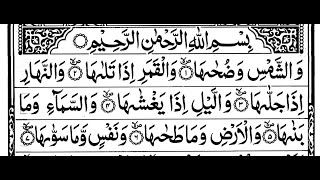 بِسْمِ اللّٰهِ الرَّحْمٰنِ الرَّحِيْمِ ○
وَ الشَّمْسِ وَضُحٰىهَا ۝۱ وَالْقَمَرِ اِذَا تَلٰىهَا ۝۲ وَالنَّهَارِ
اِذَا جَلّٰىهَا ۝۳ وَالَّيْلِ اِذَا يَغْشٰىهَا ۝۴ وَالسَّمَآءِ وَمَا
بَنٰىهَا ۝۵ وَالْاَرْضِ وَمَا طَحٰىهَا ۝۶ وَنَفْسٍ وَّمَا سَوّٰىهَا ۝۷